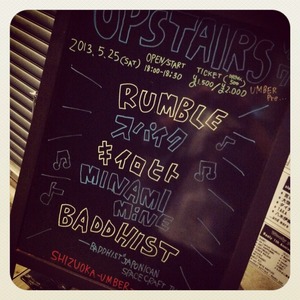 UPSTAIRS
2013.5.25(SAT) OPEN/START 18:00-18:30 TICKET ¥1,500/¥2,000
UMBER
RUMBLE
スパイク
キイロヒト
MINAMi
MiNE
BADDHIST
BADDHIST JAPONICAN
SPACE CRAFT
SHIZUOKA-UMBER